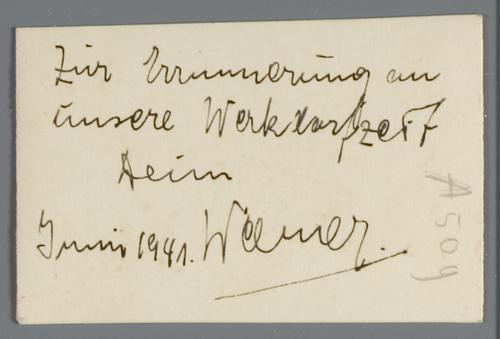 Zur Erinnerung an
unsere Werkdorfzeit
Dein
Juni 1941. Werner.
A 509